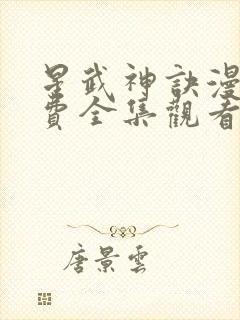 星武神訣漫
費全集觀看
唐景雲